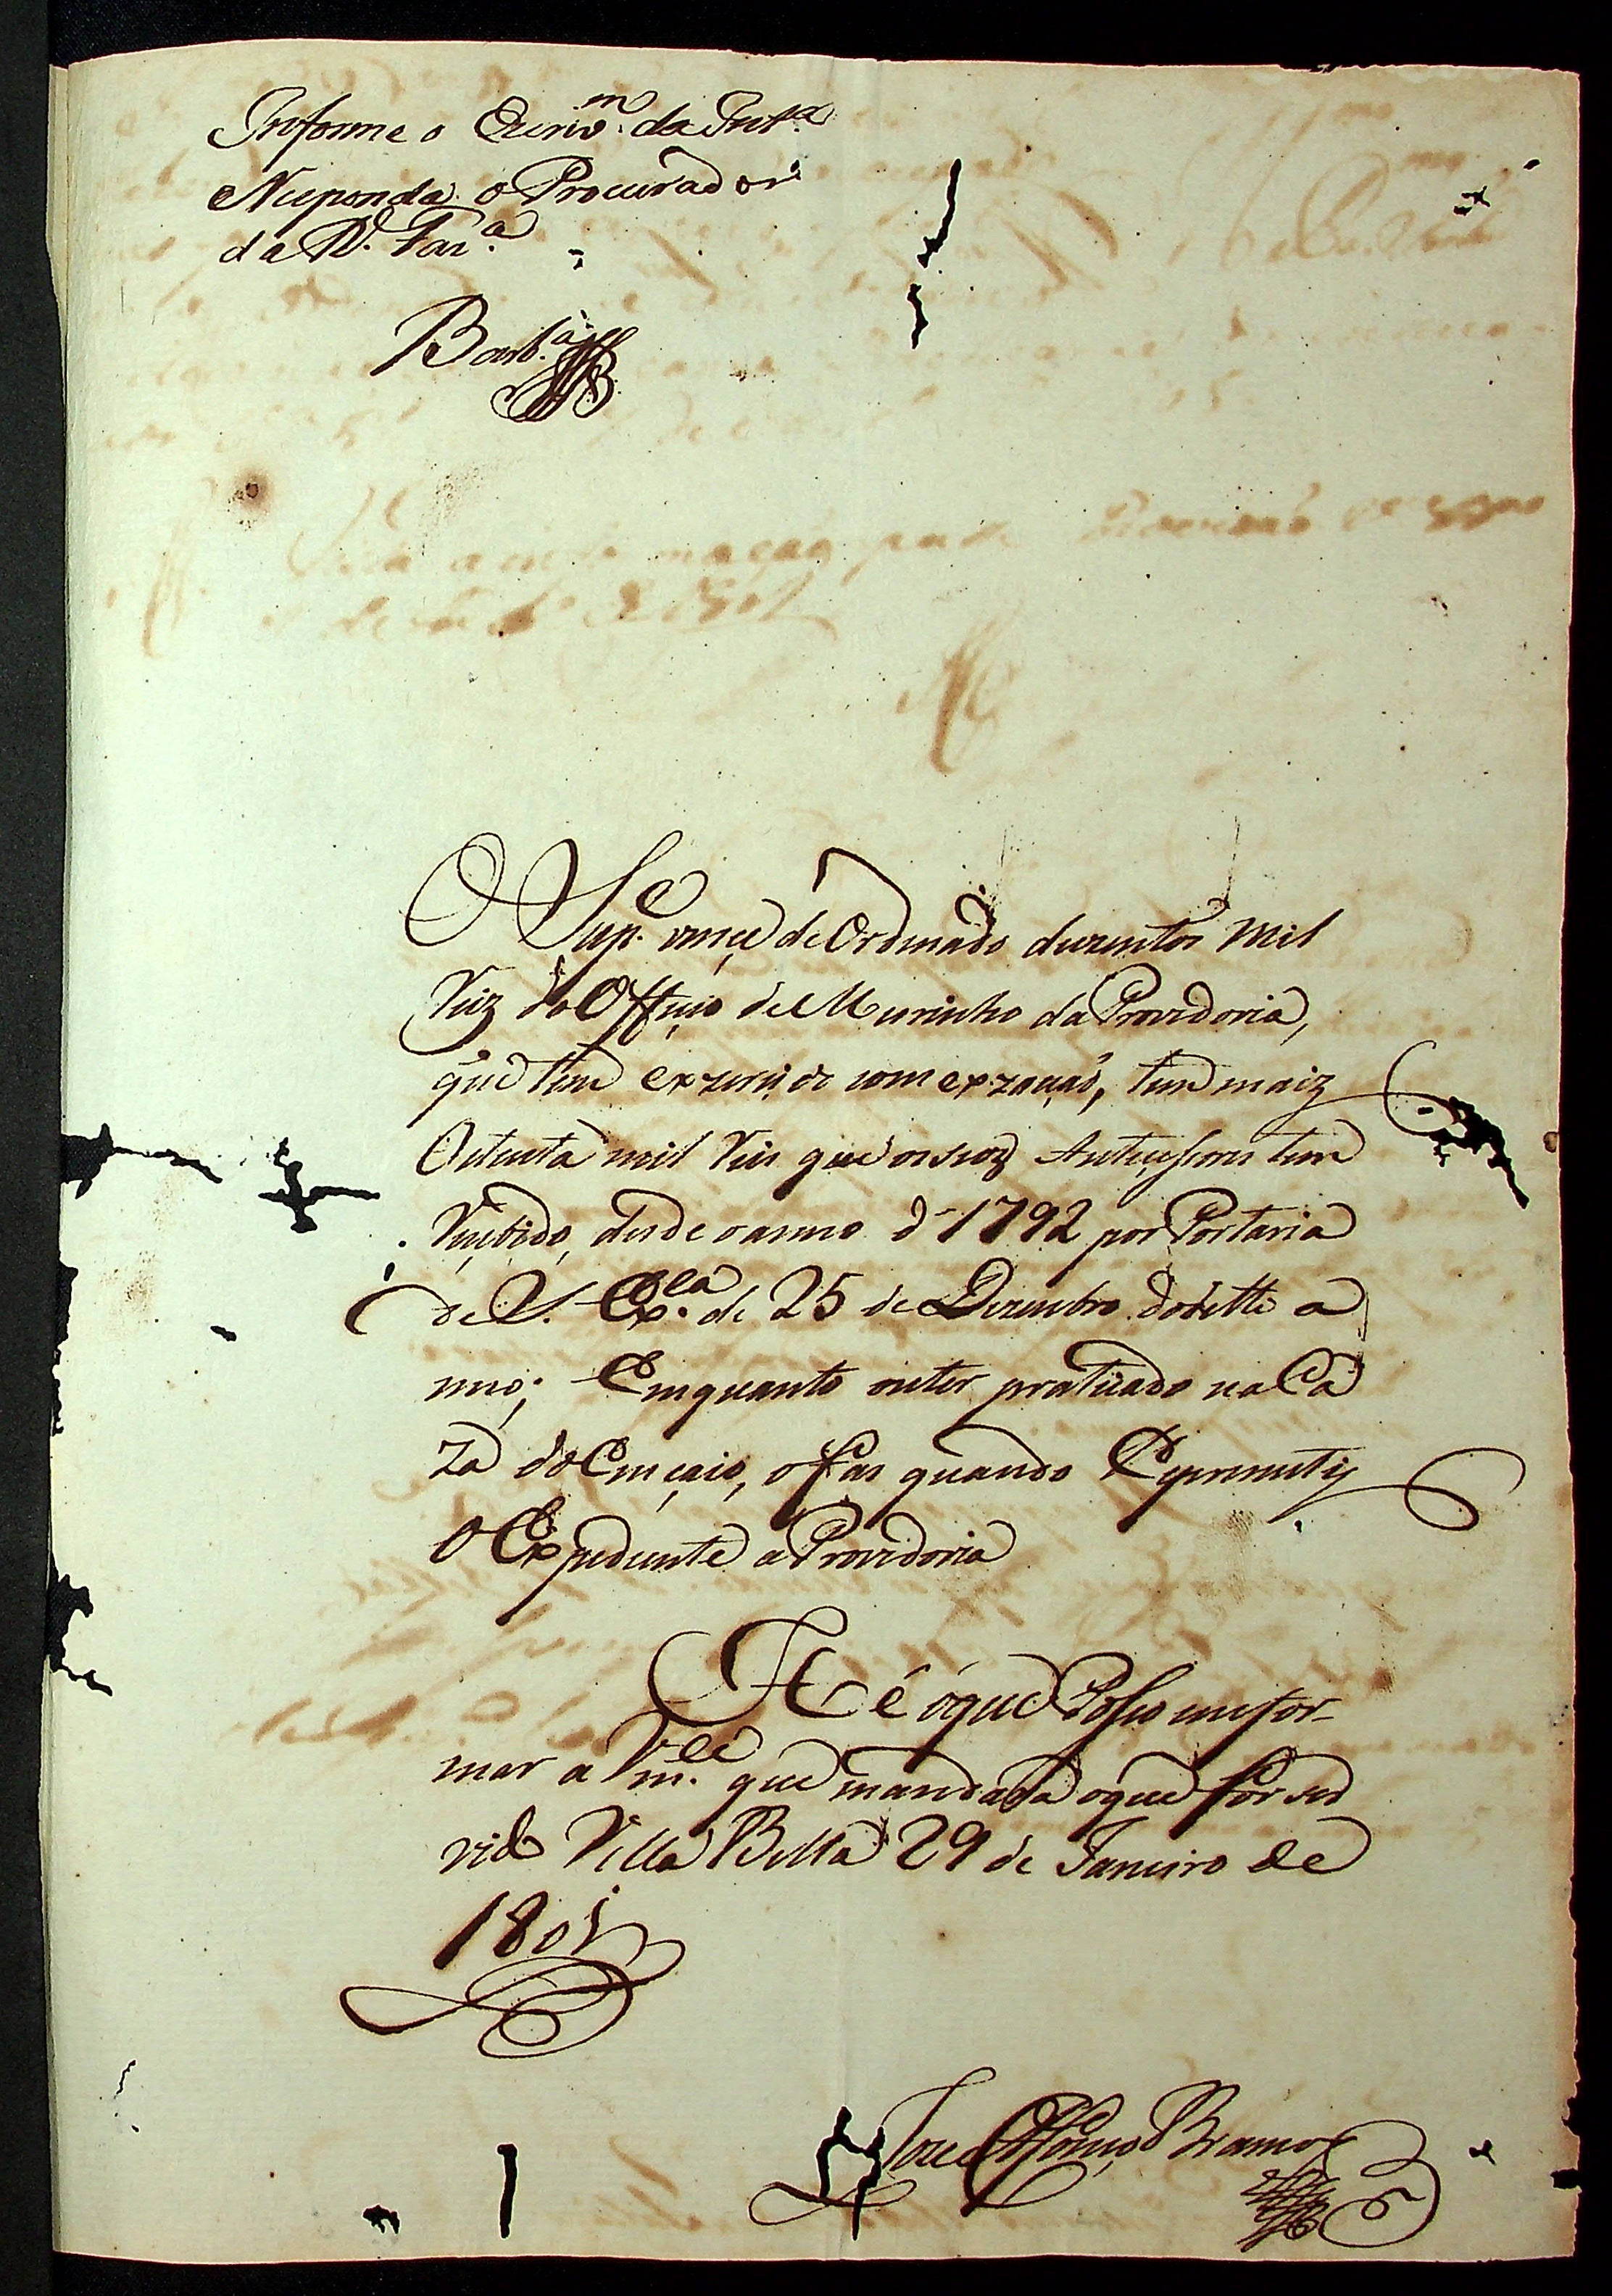 Informe o Escriv.m da Int.a
e Responda o Procurador
da R. Faz.a
Barb.a
O Sup.e vence de Ordenado duzentos mil
Reiz do Officio de Meirinho da Provedoria,
que tem exzercido com exzaçaõ, tem maiz
Oitenta mil Reis que os seoz Antecessores tem
Recebido, desde o anno d 1792 por Portaria
de S. Ex.cia de 25 de Dezembro do dette a
nno; Emquanto o ter praticado na Ca
za do Ençaio, o faz quando Cepremetiz
O Expediente a Provedoria
He é o que Posso emfor-
mar a Vm.ce que mandará o que for ser
vido Villa Bella 29 de Janeiro de
1801
Joze Affonço Ramoz